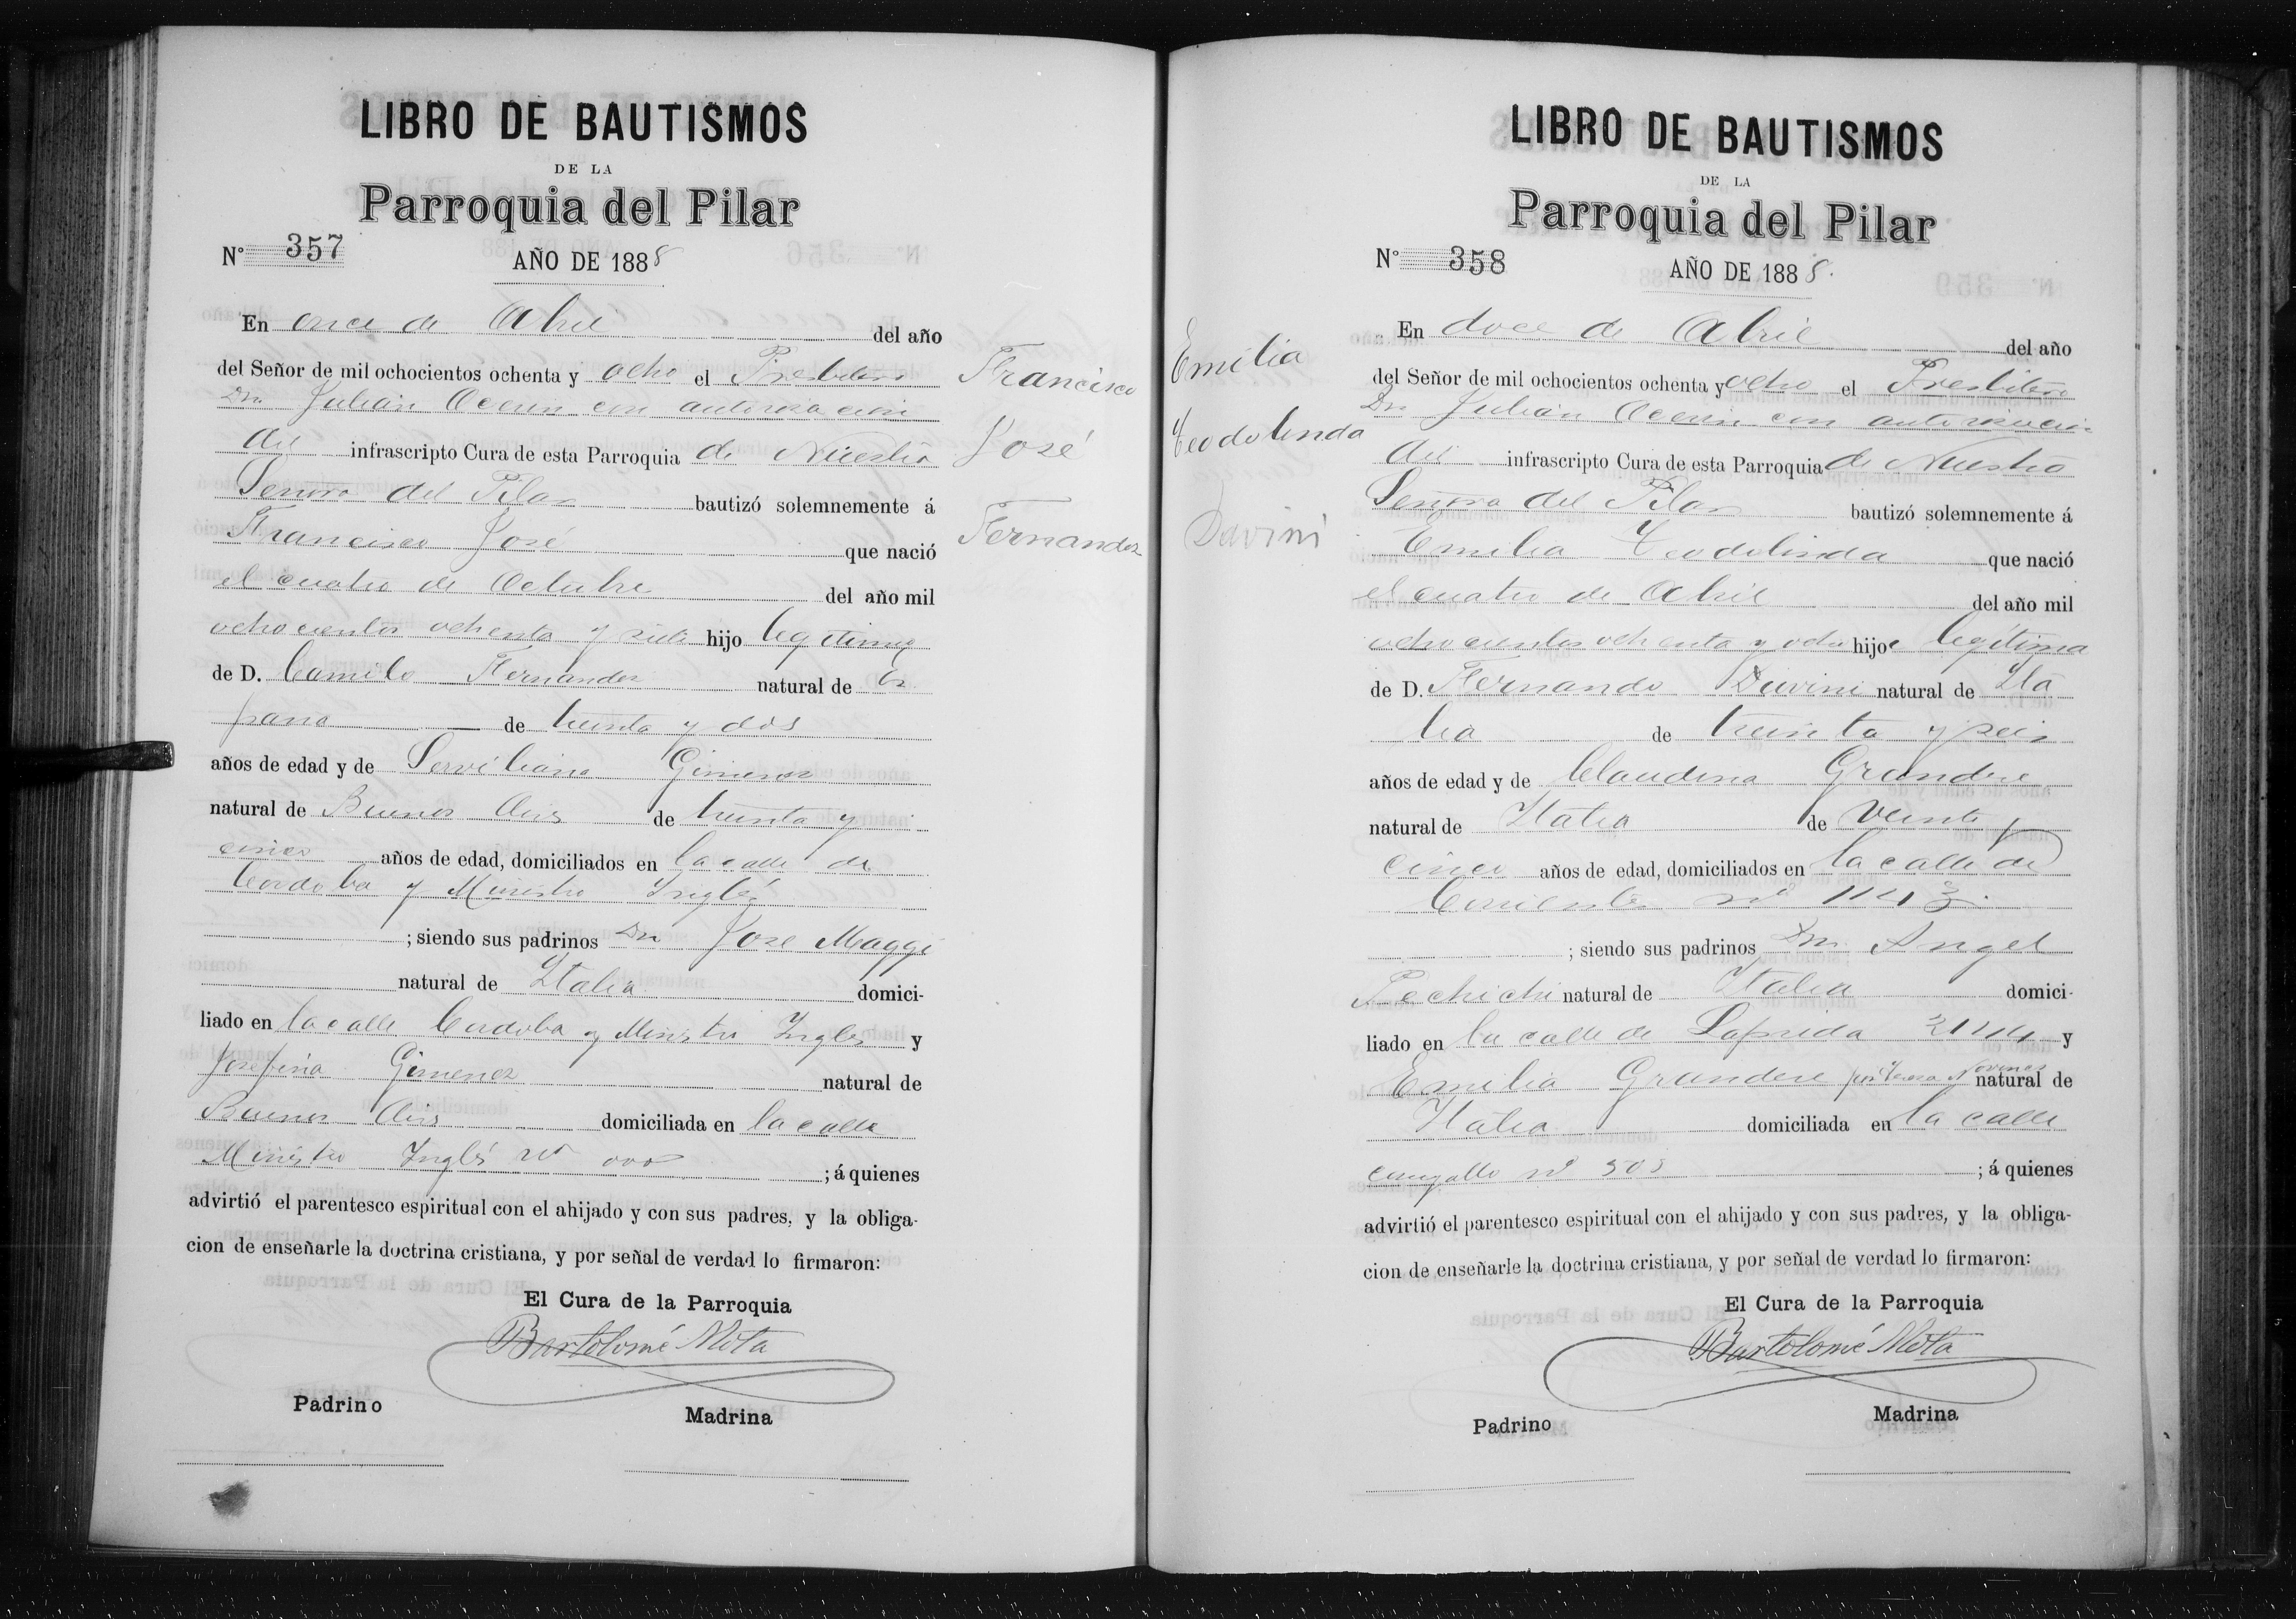 LIBRO DE BAUTISMOS
DE LA
Parroquia del Pilar
N° 357
AÑO DE 1888
En once de Abril del año
del Señor de mil ochocientos ochenta y ocho el Presbitero
Dn Julian Oceren con autorizacion
del infrascripto Cura de esta Parroquia de Nuestra
Señora del Pilar bautizó solemnemente á
Francisco José que nació
el cuatro de Octubre del año mil
ochocientos ochenta y siete hijo legitimo
de D. Camilo Fernandez natural de Es
pana de treinta y dos
años de edad y de Serviliana Gimenez
natural de Buenos Aires de treinta y
cinco años de edad, domiciliados en la calle de
Cordoba y Ministro Inglés
; siendo sus padrinos Dn Jose Maggi
natural de Italia domici-
liado en la calle Cordoba y Ministro Ingles y
Josefina Gimenez natural de
Buenos Aires domiciliada en la calle
Ministro Inglés no 000 ; á quienes
advirtió el parentesco espiritual con el ahijado y con sus padres, y la obliga-
cion de enseñarle la doctrina cristiana, y por señal de verdad lo firmaron:
El Cura de la Parroquia
Bartolomé Mota
Padrino
Madrina
Francisco
José
Fernandez
LIBRO DE BAUTISMOS
DE LA
Parroquia del Pilar
N° 358
AÑO DE 1888.
Emilia
Teodolinda
Davini
En doce de Abril del año
del Señor de mil ochocientos ochenta y ocho el Presbitero
Dn Julian Oceren con autorizacion
del infrascripto Cura de esta Parroquia de Nuestra
Señora del Pilar bautizó solemnemente á
Emilia Teodolinda que nació
el cuatro de Abril del año mil
ochocientos ochenta y ocho hijoa legítima
de D. Fernando Davini natural de Ita
lia de treinta y seis
años de edad y de Claudina Grandere
natural de Italia de veinte y
cinco años de edad, domiciliados en la calle de
Corrientes no 1143.
; siendo sus padrinos Dn Angel
Pechichi natural de Italia domici-
liado en la calle de Laprida 2144 y
Emilia Grandere por Teresa natural de
Italia domiciliada en la calle
cangallo no 505 ; á quienes
advirtió el parentesco espiritual con el ahijado y con sus padres, y la obliga-
cion de enseñarle la doctrina cristiana, y por señal de verdad lo firmaron:
El Cura de la Parroquia
Bartolomé Mota
Padrino
Madrina